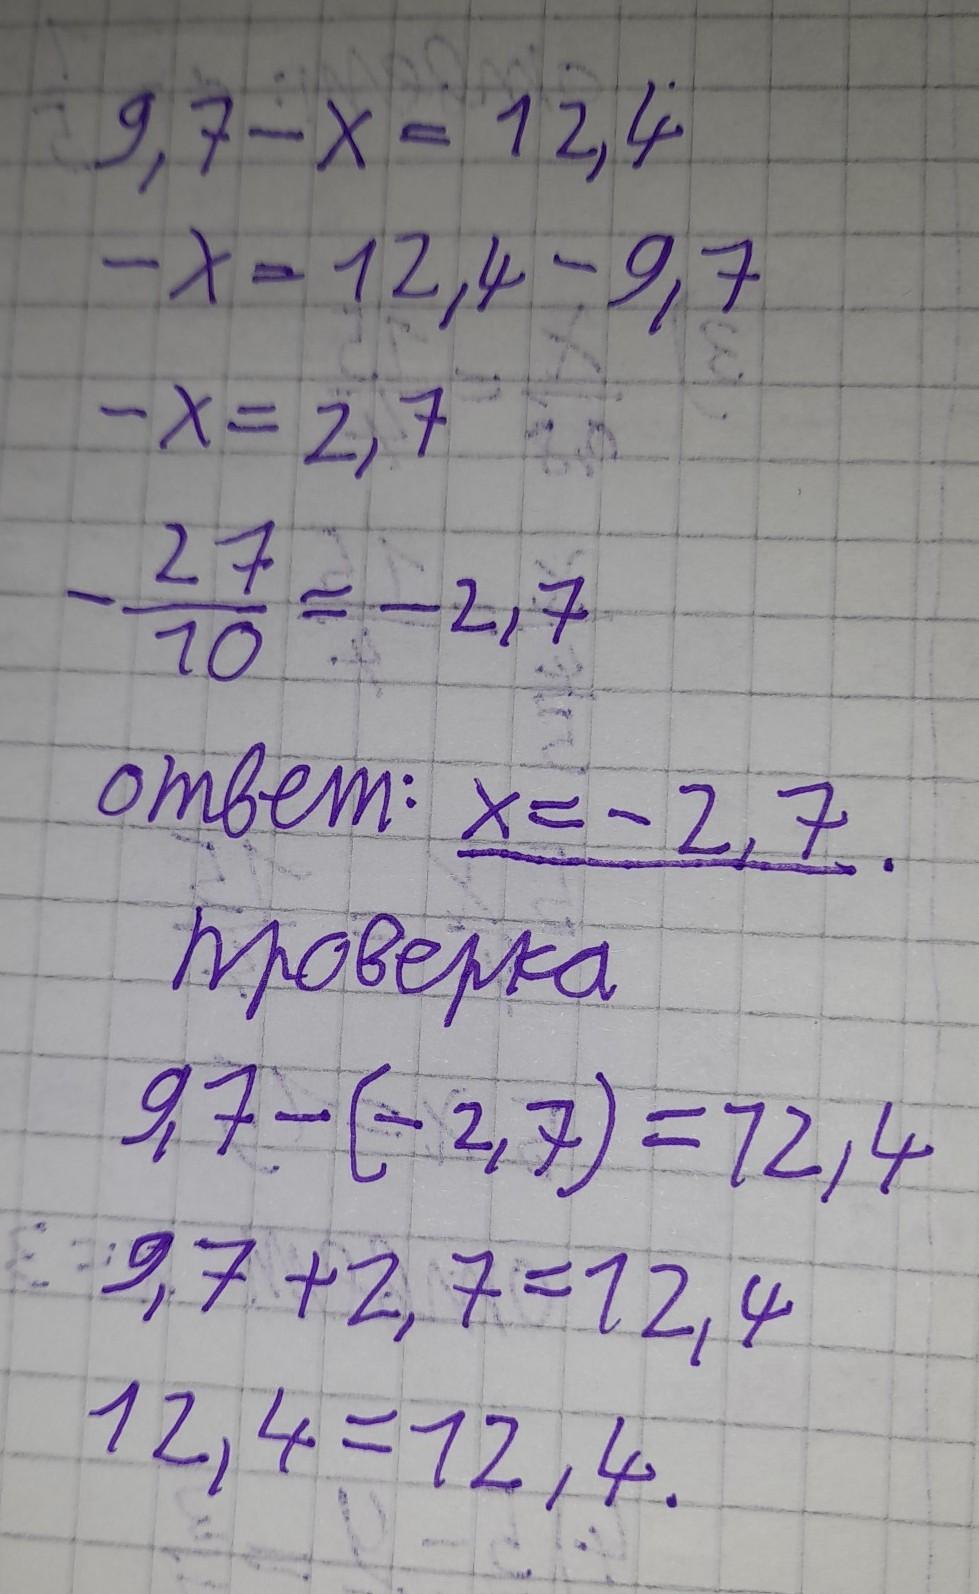 9,7-x=12,4
-x=12,4-9,7
-x=2,7
-27/10=-2,7
ответ: x=-2,7.
проверка
9,7-(-2,7)=12,4
9,7+2,7=12,4
12,4=12,4.